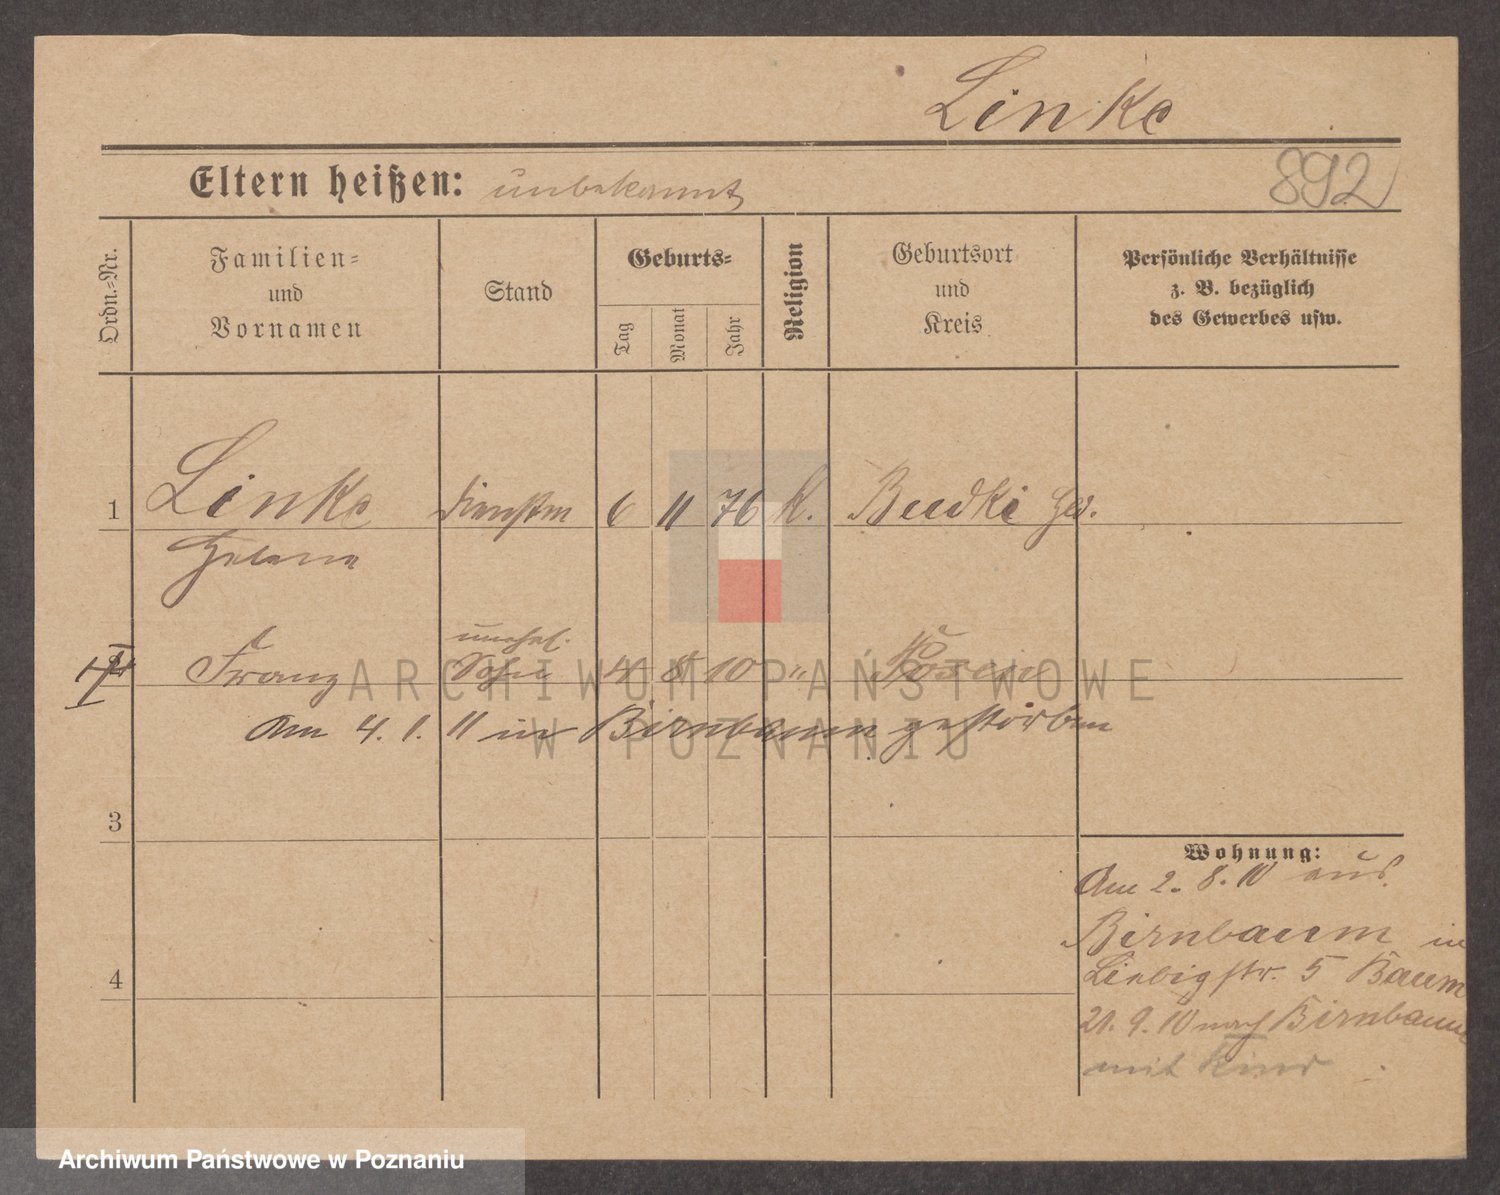 Linke
892
Eltern heißen: unbekannt
Ordn.-Nr.
Familien-
und
Vornamen
Stand
Geburts-
Tag
Monat
Jahr
Religion
Geburtsort
und
Kreis
Persönliche Verhältnisse
z. B. bezüglich
des Gewerbes usw.
1 Linke dienstm 6 11 76 k. Budki
Helena
unehel.
Franz Sohn 4 8 10 " Posen
Am 4. 1. 11 in Birnbaum gestorben
3
4
Wohnung:
Am 2. 8. 10 aus
Birnbaum in
Liebigstr. 5 Baum
21. 9. 10 nach Birnbaum
mit Kind
ARCHIWUM PAŃSTWOWE
W POZNANIU
Archiwum Państwowe w Poznaniu